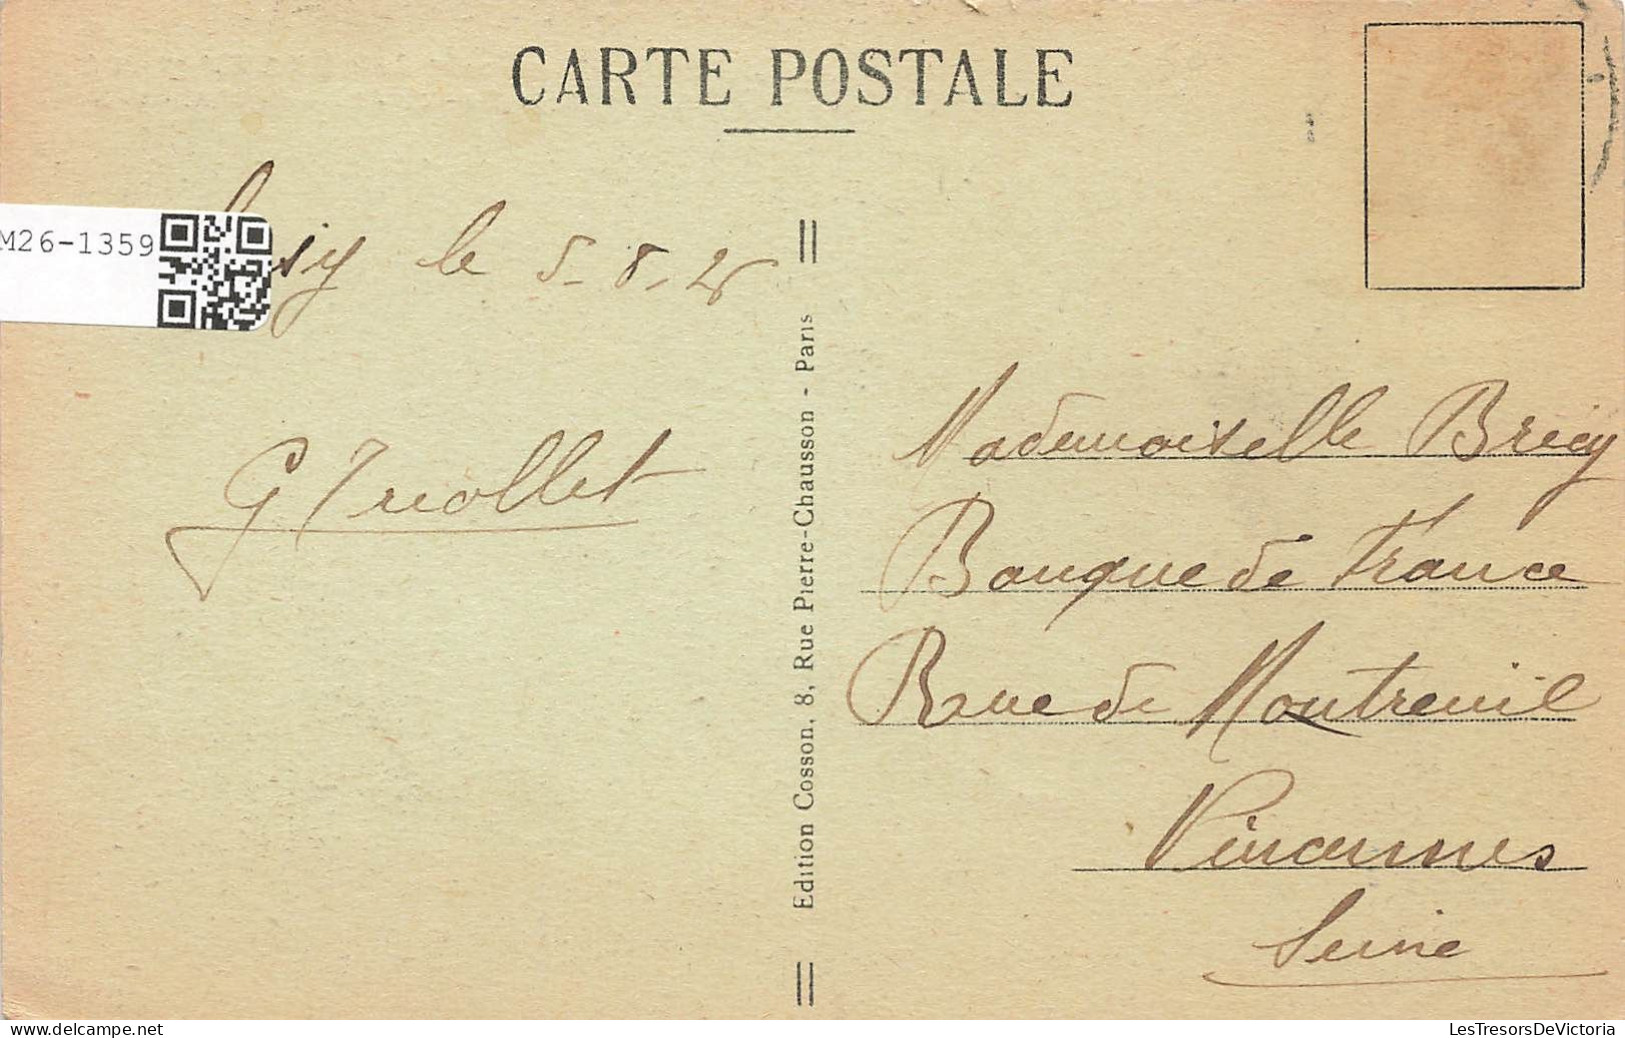 CARTE POSTALE
M26-1359
le 5-8-26
G Triollet
Edition Cosson, 8, Rue Pierre-Chausson - Paris
Mademoiselle Bricy
Banque de France
Rue de Montreuil
Vincennes
Seine
LesTresorsDeVictoria
www.delcampe.net